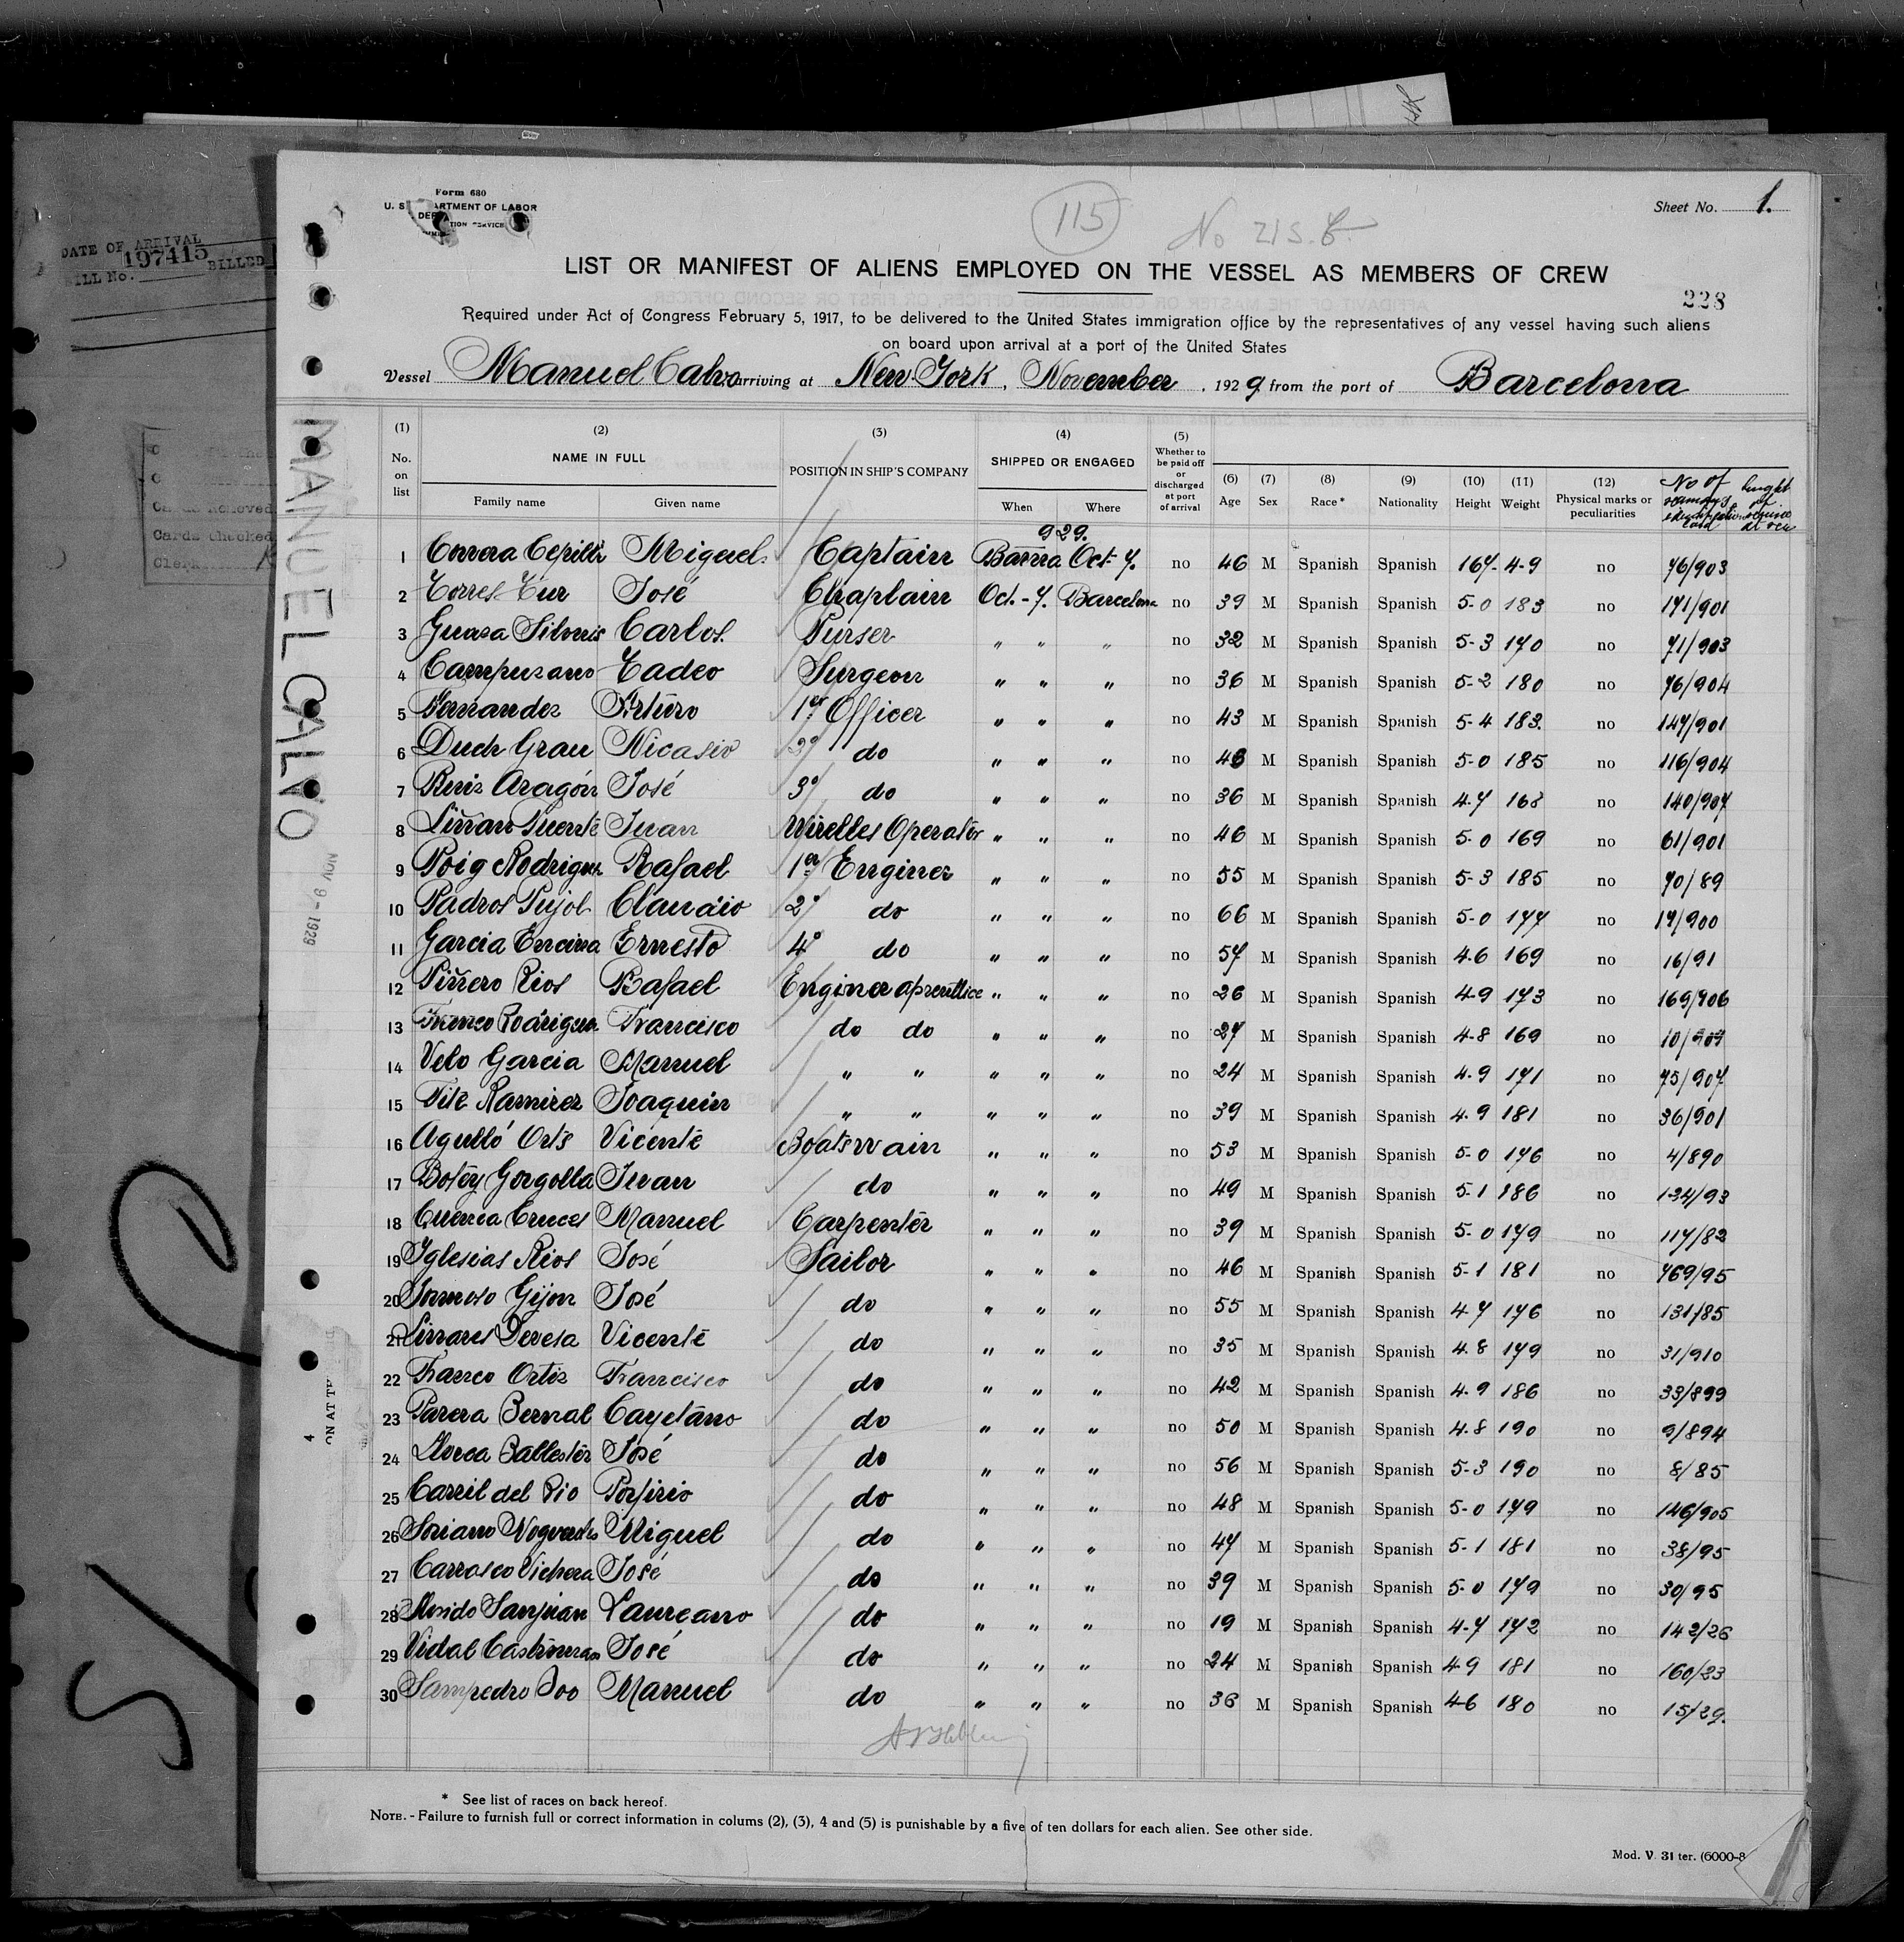 Form 680
U. S. DEPARTMENT OF LABOR
Sheet No. 1.
115
No
DATE OF ARRIVAL
BILL No. 197415 BILLED
LIST OR MANIFEST OF ALIENS EMPLOYED ON THE VESSEL AS MEMBERS OF CREW
228
Required under Act of Congress February 5, 1917, to be delivered to the United States immigration office by the representatives of any vessel having such aliens
on board upon arrival at a port of the United States
Vessel Manuel Calvo arriving at New York, November, 1929, from the port of Barcelona
MANUEL CALVO
NOV 9 - 1929
Cards Checked
Clerk
(1) No. on list
(2) NAME IN FULL Family name Given name
(3) POSITION IN SHIP'S COMPANY
(4) SHIPPED OR ENGAGED When Where
(5) Whether to be paid off or discharged at port of arrival
(6) Age (7) Sex (8) Race * (9) Nationality (10) Height (11) Weight (12) Physical marks or peculiarities
No of
929.
1 Miguel Captain Oct 7. no 46 M Spanish Spanish 167- 4-9 no 76/903
2 Torres Tur José Chaplain Oct.-7. Barcelona no 39 M Spanish Spanish 5-0 183 no 171/901
3 Guasa Carlos Purser " " " no 32 M Spanish Spanish 5-3 170 no 71/903
4 Campusano Tadeo Surgeon " " " no 36 M Spanish Spanish 5-2 180 no 76/904
5 Fernandez Arturo 1er Officer " " " no 43 M Spanish Spanish 5-4 183. no 147/901
6 Duch Grau Nicasio 2º do " " " no 46 M Spanish Spanish 5-0 185 no 116/904
7 Ruiz Aragón José 3º do " " " no 36 M Spanish Spanish 4.7 168 no 140/907
8 Liñan Puente Juan Wirelles Operator " " " no 46 M Spanish Spanish 5-0 169 no 61/901
9 Poig Rodriguez Rafael 1er Enginer " " " no 55 M Spanish Spanish 5-3 185 no 70/89
10 Padros Pujol Claudio 2º do " " " no 66 M Spanish Spanish 5-0 177 no 17/900
11 Garcia Encina Ernesto 4º do " " " no 57 M Spanish Spanish 4-6 169 no 16/91
12 Piñero Rios Rafael Enginer aprentice " " " no 26 M Spanish Spanish 4-9 173 no 169/906
13 Rodriguez Francisco do do " " " no 27 M Spanish Spanish 4-8 169 no
14 Velo Garcia Manuel " " " " " no 24 M Spanish Spanish 4-9 171 no 75/907
15 Ramirez Joaquin " " " " " no 39 M Spanish Spanish 4-9 181 no 36/901
16 Agulló Orts Vicente Boatswain " " " no 53 M Spanish Spanish 5-0 176 no 4/890
17 Botey Gorgolla Juan do " " " no 49 M Spanish Spanish 5-1 186 no 134/93
18 Cuenca Cruces Manuel Carpenter " " " no 39 M Spanish Spanish 5-0 179 no 117/82
19 Iglesias Rios José Sailor " " " no 46 M Spanish Spanish 5-1 181 no 769/95
20 Gijon José do " " " no 55 M Spanish Spanish 4-7 176 no 131/85
21 Linares Devesa Vicente do " " " no 35 M Spanish Spanish 4.8 179 no 31/910
22 Franco Ortiz Francisco do " " " no 42 M Spanish Spanish 4-9 186 no 33/899
23 Parera Bernal Cayetano do " " " no 50 M Spanish Spanish 4.8 190 no 9/894
24 Llorca Ballester José do " " " no 56 M Spanish Spanish 5-3 190 no 8/85
25 Carril del Rio Porfirio do " " " no 48 M Spanish Spanish 5-0 179 no 146/905
26 Soriano Miguel do " " " no 47 M Spanish Spanish 5-1 181 no 38/95
27 Carrasco Vichera José do " " " no 39 M Spanish Spanish 5-0 179 no 30/95
28 Sanjuan Laureano do " " " no 19 M Spanish Spanish 4-7 172 no 142/26
29 Vidal José do " " " no 24 M Spanish Spanish 4-9 181 no 160/23
30 Sampedro Boo Manuel do " " " no 36 M Spanish Spanish 4-6 180 no 15/29.
* See list of races on back hereof.
NOTE. - Failure to furnish full or correct information in colums (2), (3), 4 and (5) is punishable by a five of ten dollars for each alien. See other side.
Mod. V. 31 ter. (6000-8